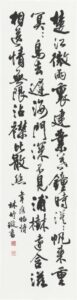 楚江微雨裏建業暮鐘時漠々帆來重
冥々鳥去遲海門深不見浦樹遠含滋
相送情無限沾襟比散絲
韋應物詩